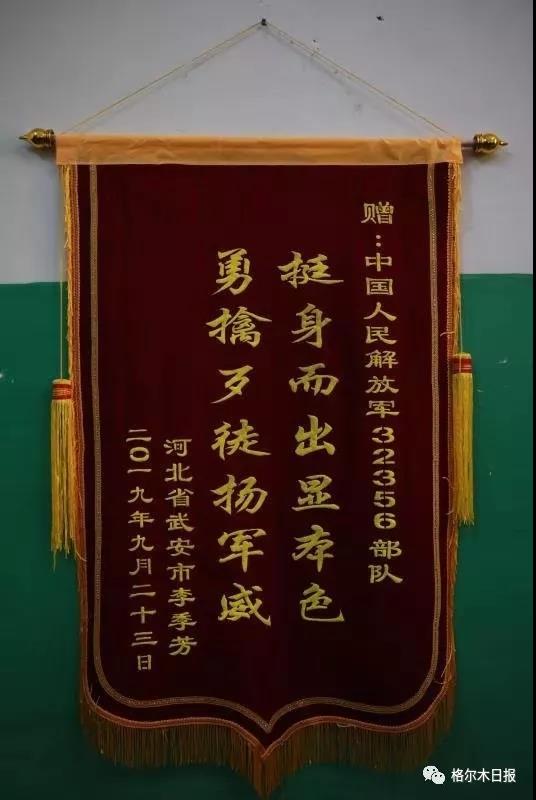 赠：中国人民解放军32356部队
挺身而出显本色
勇擒歹徒扬军威
河北省武安市李季芳
二〇一九年九月二十三日
格尔木日报